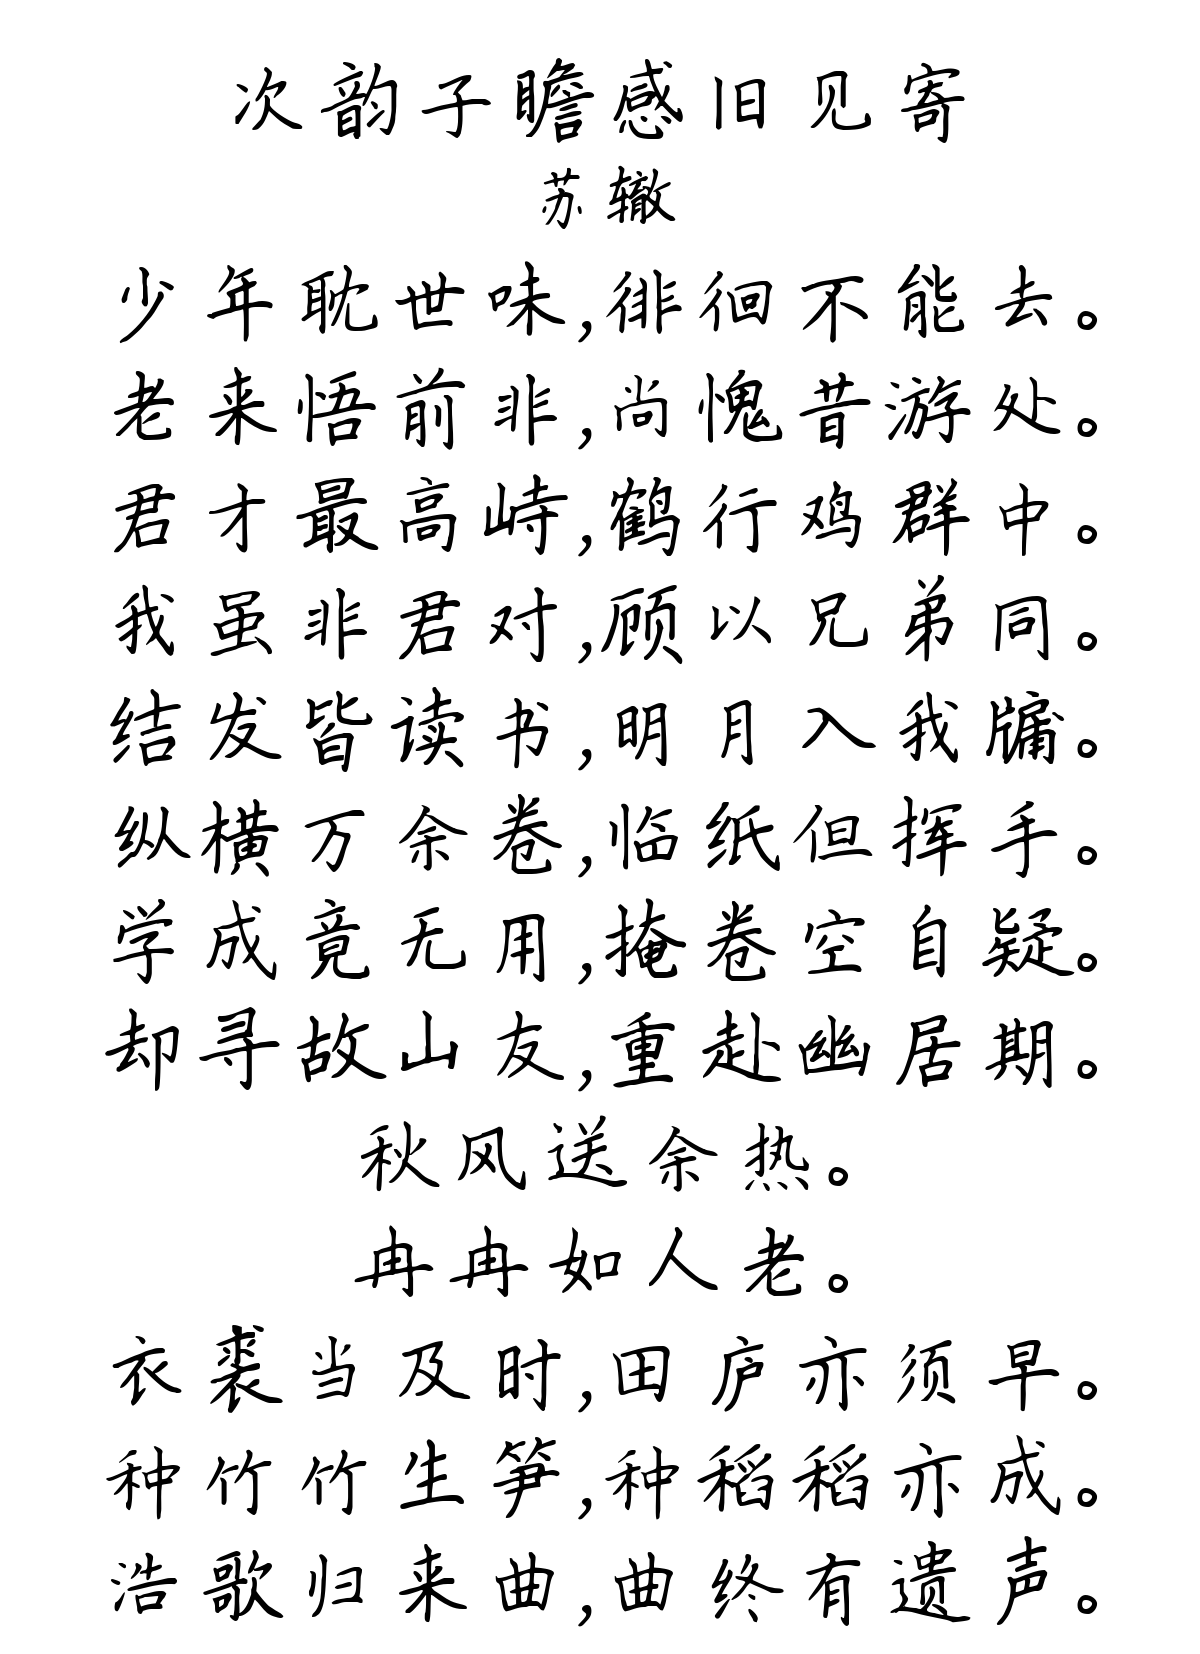 次韵子瞻感旧见寄
苏辙
少年耽世味,徘徊不能去。
老来悟前非,尚愧昔游处。
君才最高峙,鹤行鸡群中。
我虽非君对,顾以兄弟同。
结发皆读书,明月入我牖。
纵横万余卷,临纸但挥手。
学成竟无用,掩卷空自疑。
却寻故山友,重赴幽居期。
秋风送余热。
冉冉如人老。
衣裘当及时,田庐亦须早。
种竹竹生笋,种稻稻亦成。
浩歌归来曲,曲终有遗声。